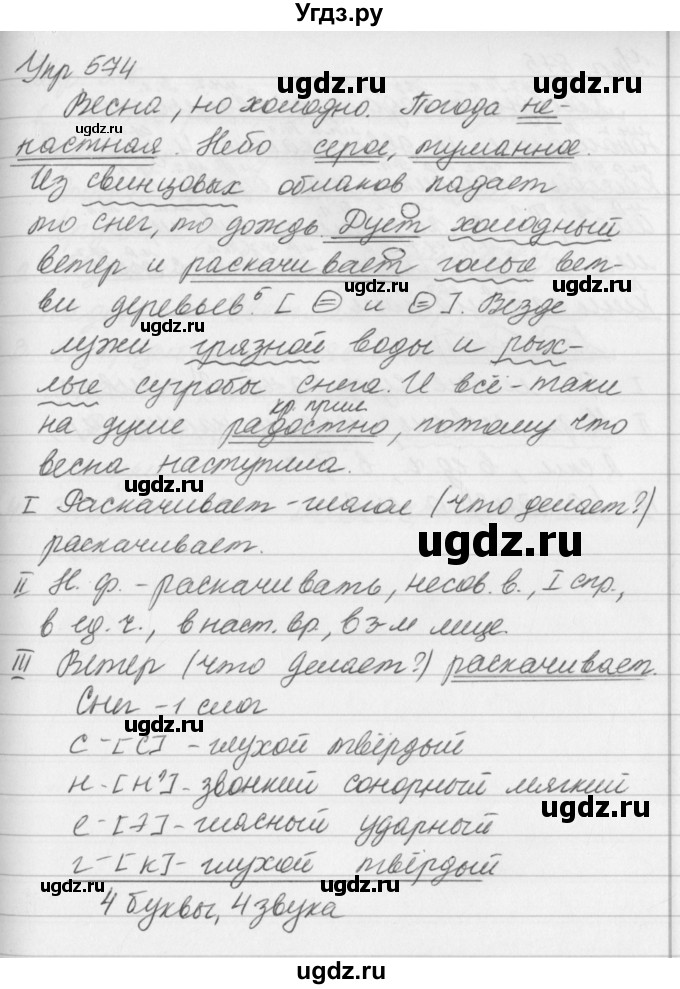 Угдз.ру
Упр 574
Весна, но холодно. Погода не-
настная. Небо серое, туманное.
Из свинцовых облаков падает
то снег, то дождь. Дует холодный
ветер и раскачивает голые вет-
ви деревьев.⁵ [ = и = ]. Везде
лужи грязной воды и рых-
лые сугробы снега. И всё-таки
кр. прил.
на душе радостно, потому что
весна наступила.
I Раскачивает - глагол (что делает?)
раскачивает.
II Н. ф. - раскачивать, несов. в., I спр.,
в ед. ч., в наст. вр., в 3-м лице.
III Ветер (что делает?) раскачивает.
Снег - 1 слог
с - [с] - глухой твёрдый
н - [н'] - звонкий сонорный мягкий
е - [э] - гласный ударный
г - [к] - глухой твёрдый
4 буквы, 4 звука
ugdz.ru
ugdz.ru
ugdz.ru
ugdz.ru
ugdz.ru
ugdz.ru
ugdz.ru
ugdz.ru
ugdz.ru
ugdz.ru
ugdz.ru
ugdz.ru
ugdz.ru
ugdz.ru